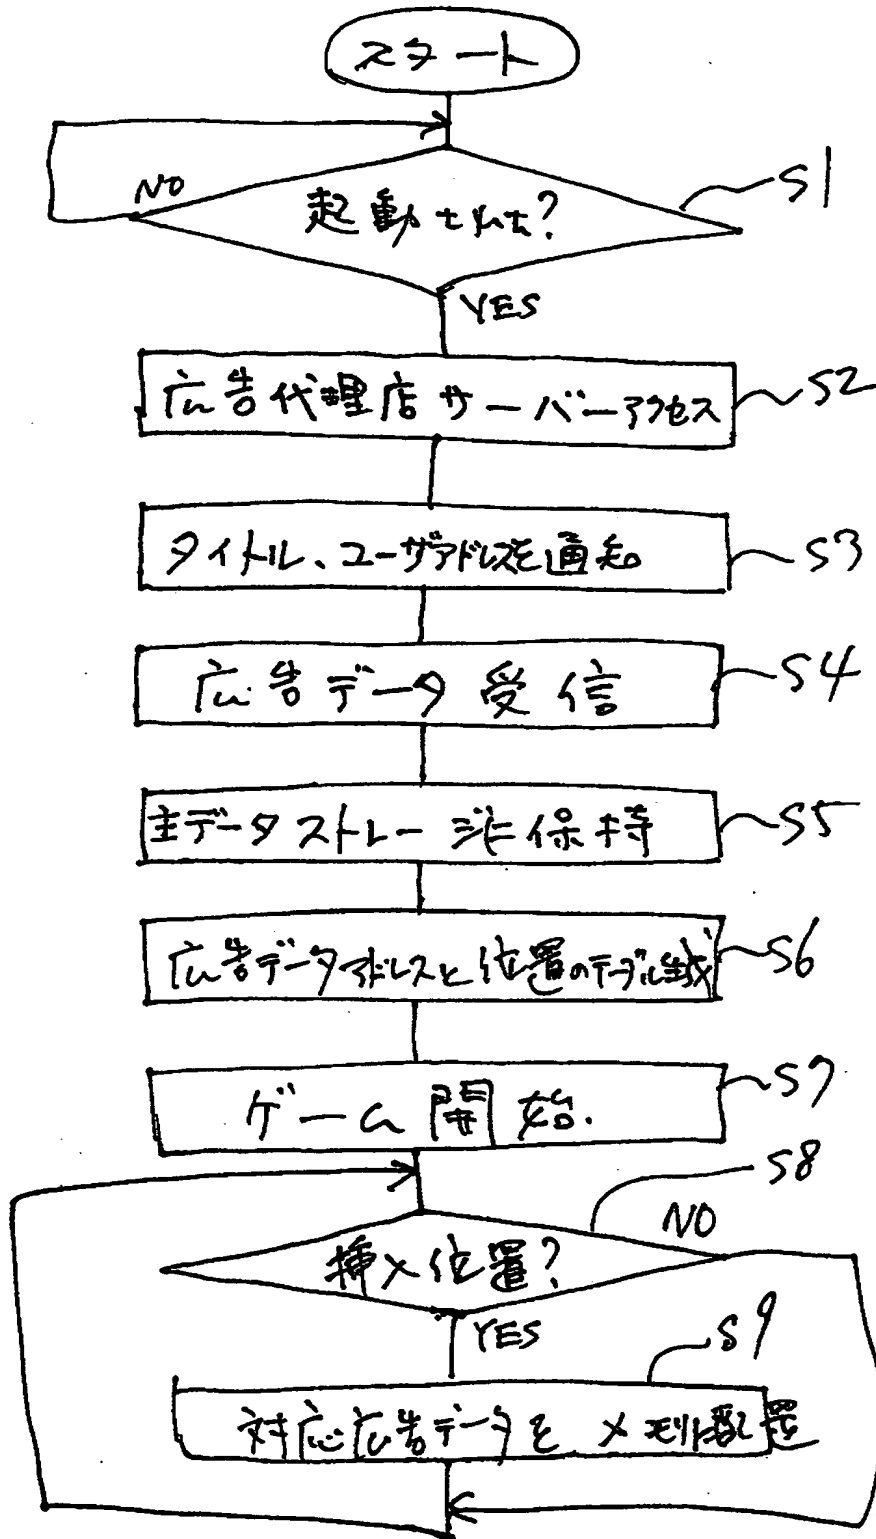 スタート
NO
起動された?
S1
YES
広告代理店サーバーアクセス
S2
タイトル、ユーザアドレスを通知
S3
広告データ受信
S4
主データストレージに保持
S5
広告データアドレスと位置のテーブル生成
S6
ゲーム開始.
S7
S8
NO
挿入位置?
YES
S9
対応広告データをメモリに配置